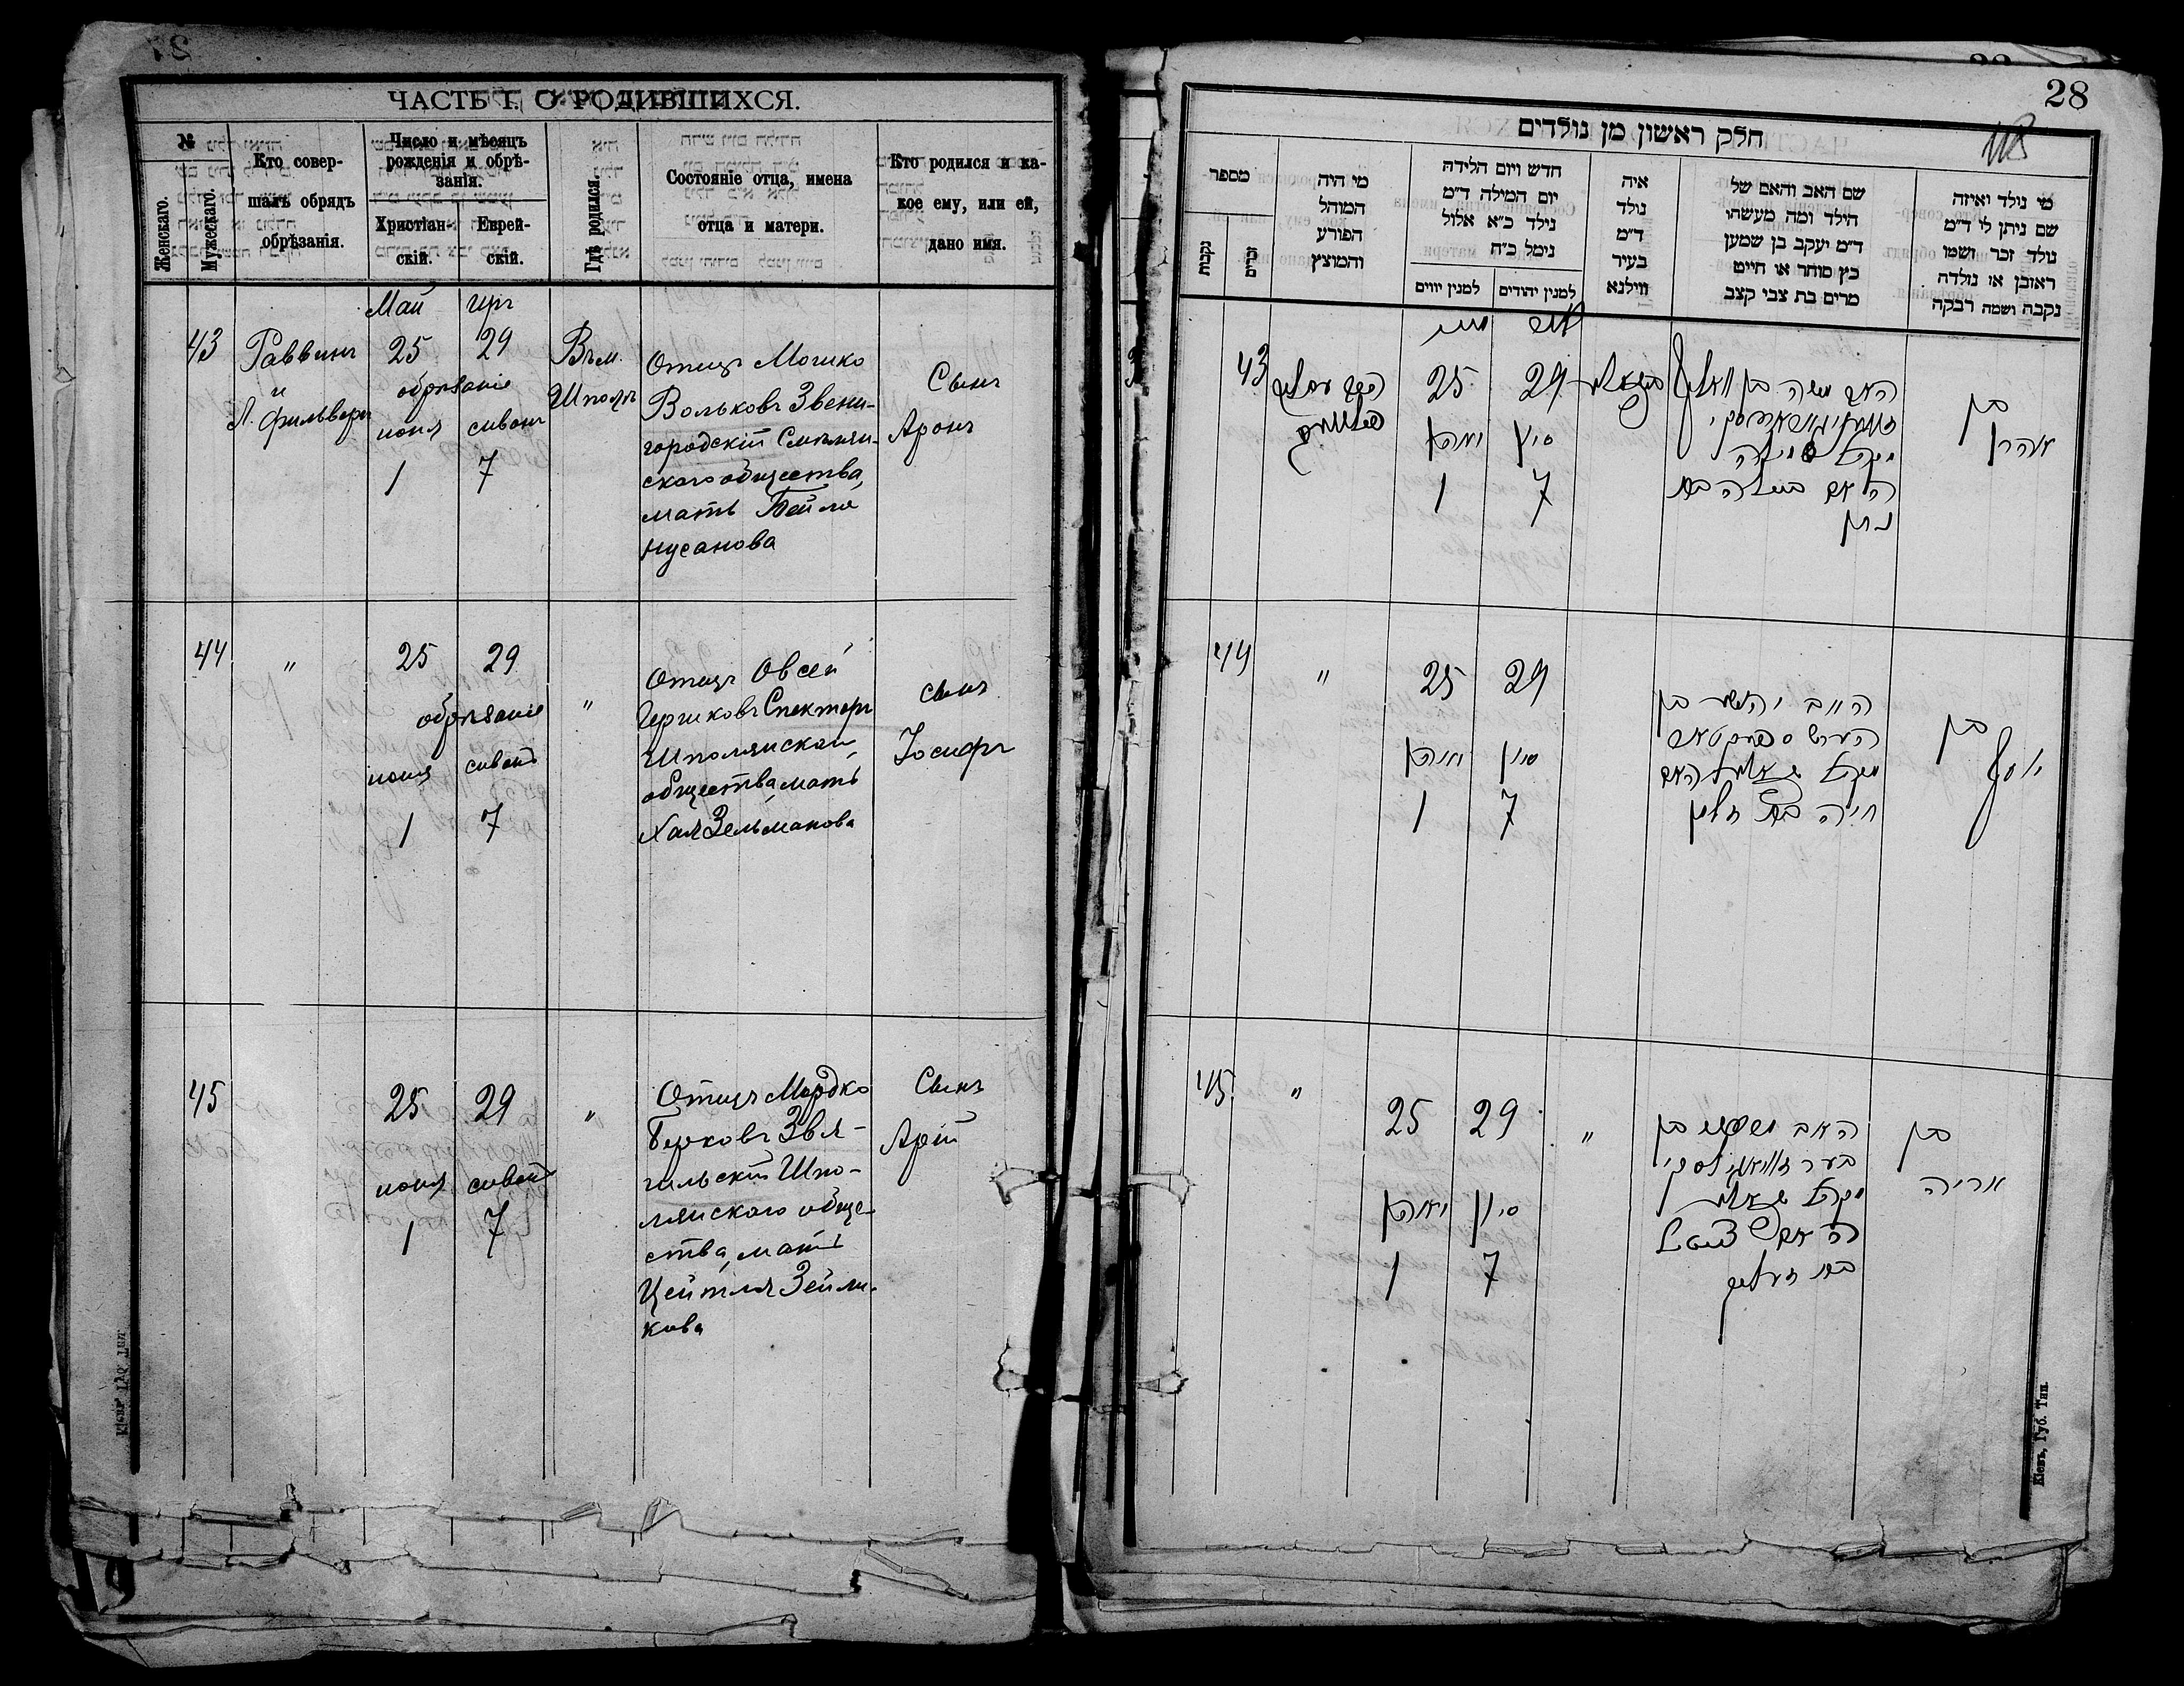 ЧАСТЬ I. О РОДИВШИХСЯ.
№
Женскаго.
Мужескаго.
Кто совер-
шалъ обрядъ
обрѣзанія.
Число и мѣсяцъ
рожденія и обрѣ-
занія.
Христіан-
скій.
Еврей-
скій.
Гдѣ родился.
Состояніе отца, имена
отца и матери.
Кто родился и ка-
кое ему, или ей,
дано имя.
Май
43
Раввинъ
и
Л. Фильверъ
25 29
обрѣзаніе
іюня сивонъ
1 7
Въ м.
Шполѣ
Отецъ Мошко
Вольковъ Звени-
городскій Смѣлян-
скаго общества,
мать Бейля
Нусанова
Сынъ
Аронъ
44
"
25 29
обрѣзаніе
іюня сивонъ
1 7
"
Отецъ Овсей
Гершковъ Спекторъ
Шполянскаго
общества, мать
Хая Зельманова
сынъ
Іосифъ
45
25 29
іюня сивонъ
1 7
"
Отецъ Мордко
Берковъ Звя-
гильскій Шпо-
лянскаго обще-
ства, мать
Цейтля Зейли-
кова
Сынъ
Арій
28
חלק ראשון מן נולדים
מספר
נקבות
זכרים
מי היה
המוהל
הפורע
והמוצץ
חדש ויום הלידה
יום המילה ד״מ
נילד כ״א אלול
נימל כ״ח
למנין יהודים
למנין יווים
איה
נולד
ד״מ
בעיר
ווילנא
שם האב והאם של
הילד ומה מעשהו
ד״מ יעקב בן שמען
כץ סוחר או חייט
מרים בת צבי קצב
מי נולד ואיזה
שם ניתן לו ד״מ
נולד זכר ושמו
ראובן או נולדה
נקבה ושמה רבקה
43
25 29
יוני סיון
1 7
האב משה בן וואלף
האם ביילה בת
נתן
בן
אהרן
44
"
25 29
יוני סיון
1 7
האב יהושע בן
הערש ספעקטאר
חיה בת זלמן
בן
יוסף
45
"
25 29
יוני סיון
1 7
"
האב מרדכי בן
בער
האם צייטל
בת זעליג
בן
אריה
Кіевъ, Губ. Тип.